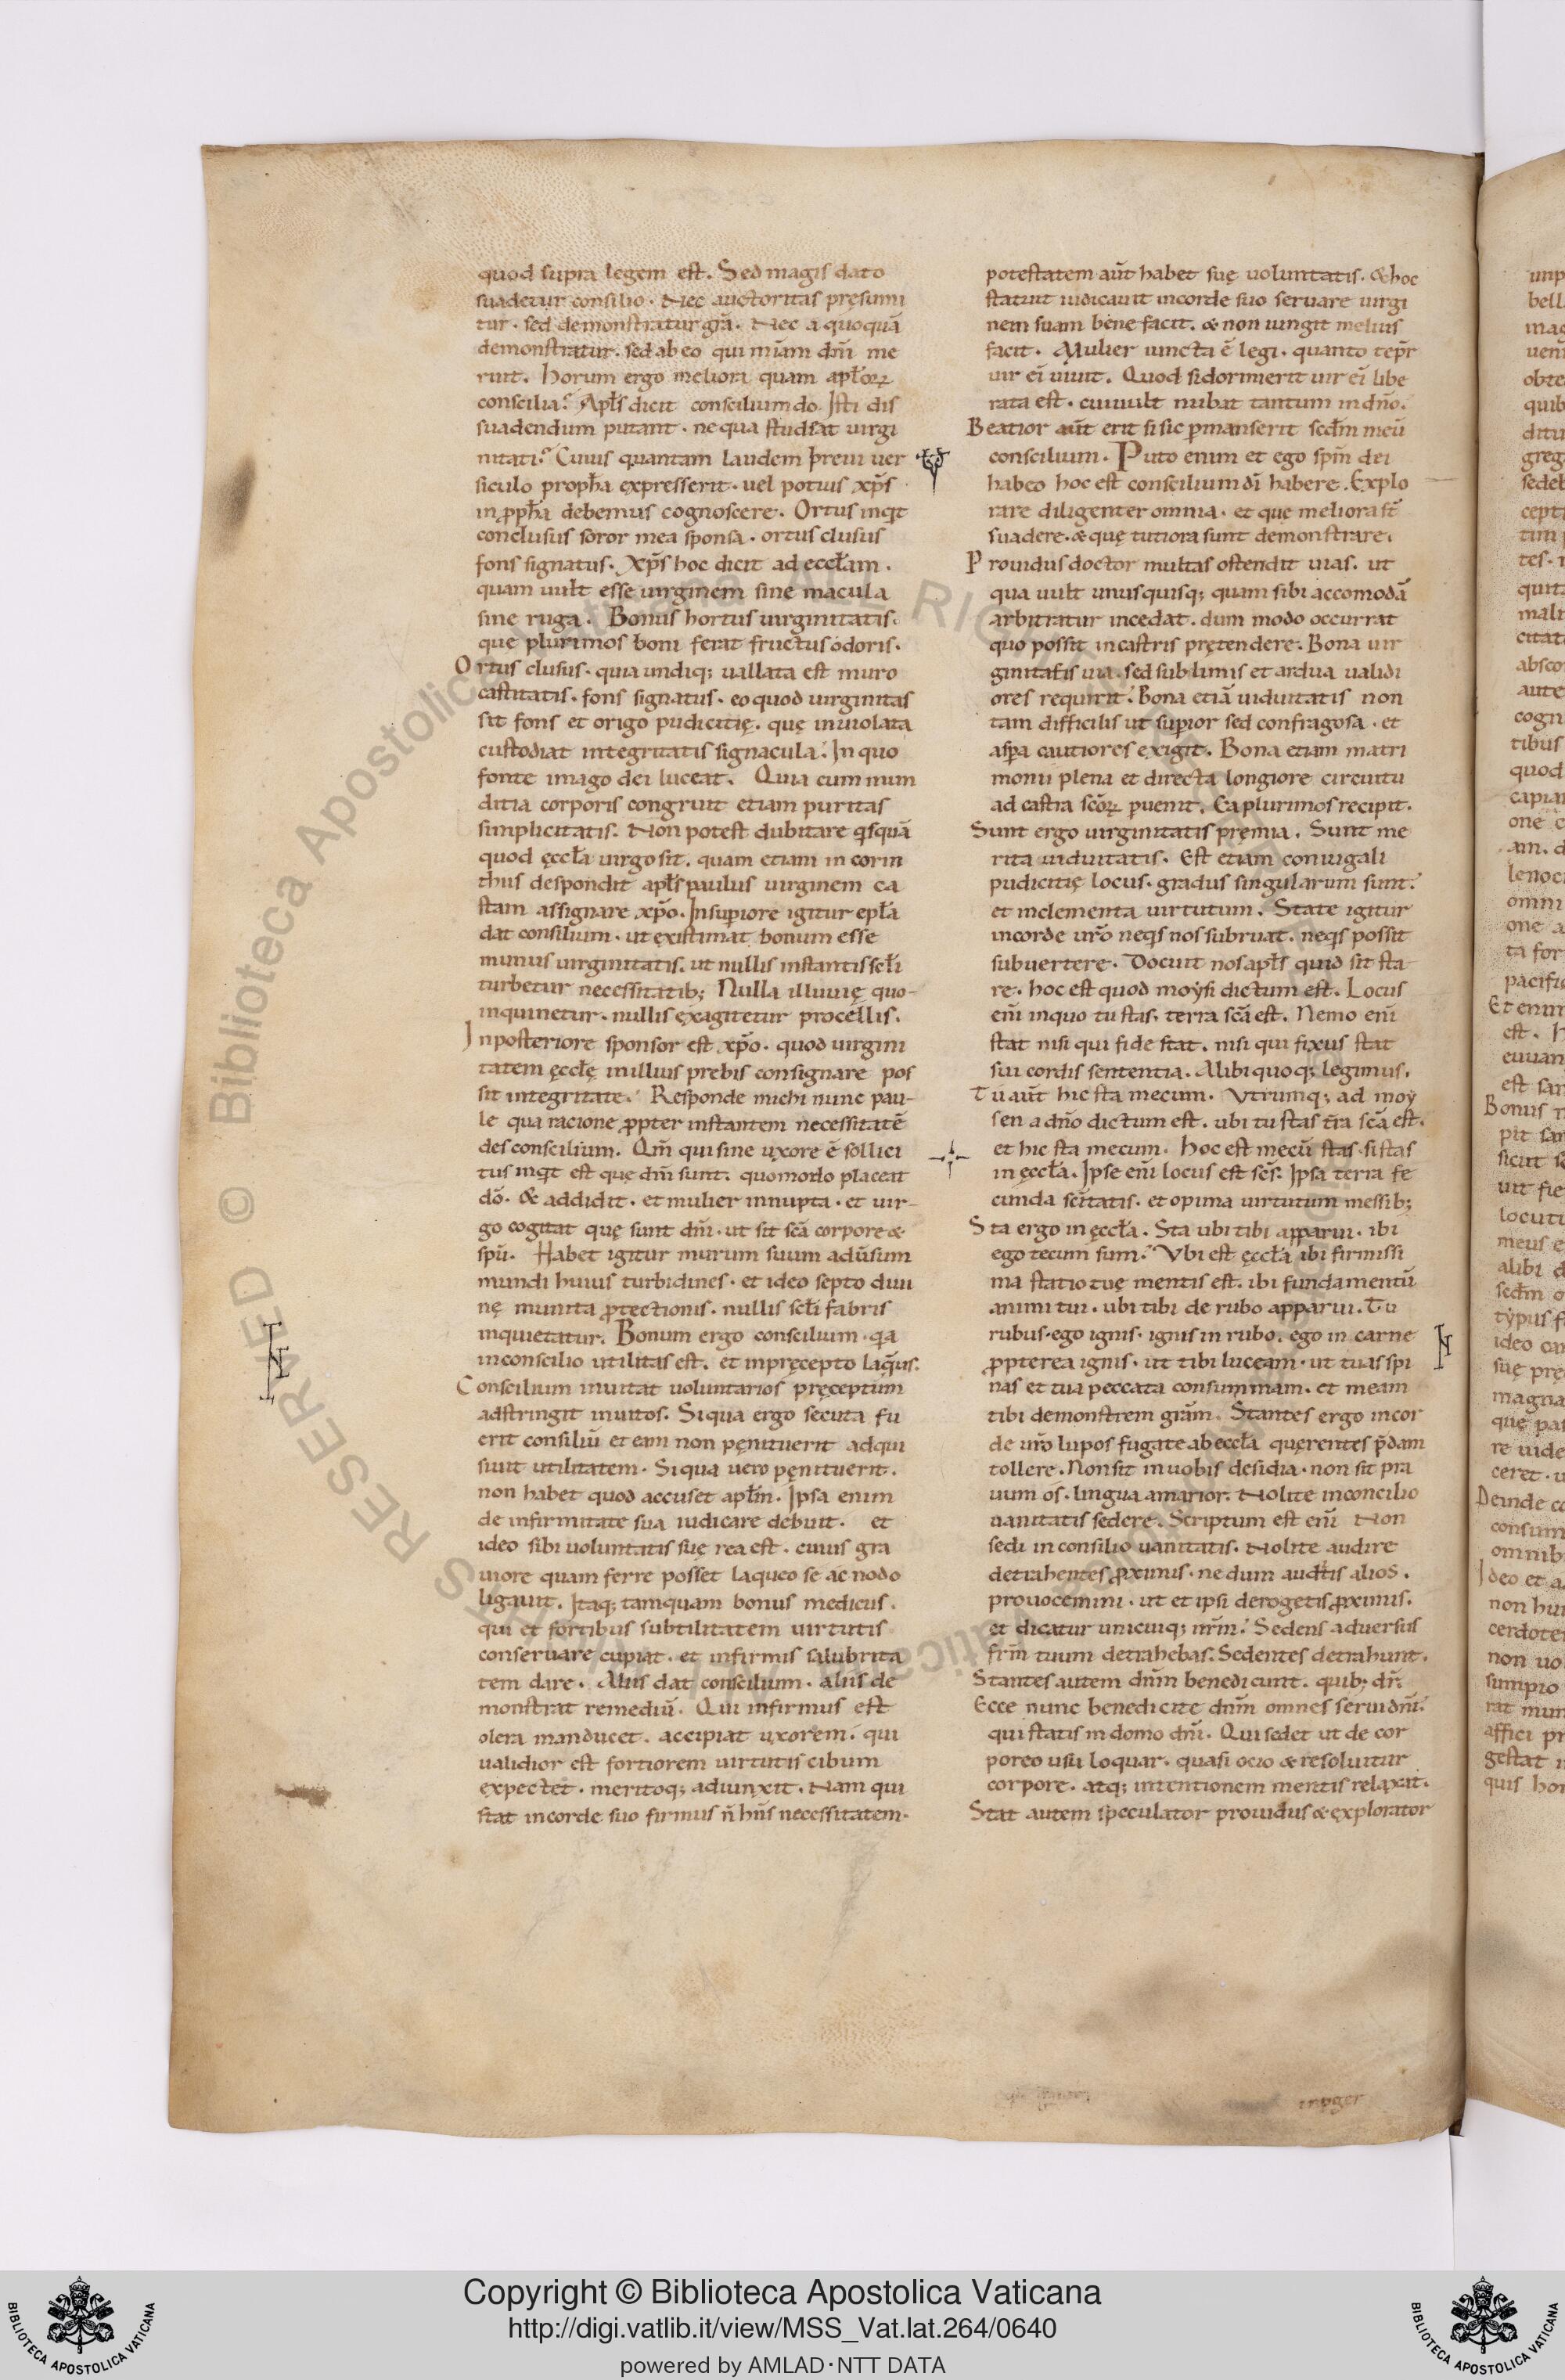 quod supra legem est. Sed magis dato
suadetur consilio. Nec auctoritas pręsumi
tur. sed demonstratur grā. Nec a quoquā
demonstratur. sed ab eo qui miam dñi me
ruit. Horum ergo meliora quam apłoꝝ
conscilia? Apłs dicit conscilium do. Isti dis
suadendum putant. ne qua studeat uirgi
nitati? Cuius quantam laudem breui uer
siculo propħa expresserit. uel potius xp̄s
in ꝓpħa debemus cognoscere. Ortus inqt
conclusus soror mea sponsa. ortus clusus
fons signatus. Xp̄s hoc dicit ad eccłam.
quam uult esse uirginem sine macula
sine ruga. Bonus hortus uirginitatis.
que plurimos boni ferat fructus odoris.
Ortus clusus. quia undiq; uallata est muro
castitatis. fons signatus. eo quod uirginitas
sit fons et origo pudicitię. quę inuiolata
custodiat integritatis signacula. In quo
fonte imago dei luceat. Quia cum mun
ditia corporis congruit etiam puritas
simplicitatis. Non potest dubitare qsquā
quod ęccła uirgo sit. quam etiam in corin
thus despondit apłs paulus uirginem ca
stam assignare xp̄o. In supiore igitur epła
dat consilium. ut existimat bonum esse
munus uirginitatis. ut nullis instantis scłi
turbetur necessitatib; Nulla illuuię quo-
inquinetur. nullis exagitetur procellis.
In posteriore sponsor est xp̄o. quod uirgini
tatem ęccłę in illius prebis consignare pos
sit integritate. Responde michi nunc pau-
le qua racione ꝓpter instantem necessitatē
des conscilium. Qm̄ qui sine uxore ē sollici
tus inqt est quę dn̄i sunt. quomodo placeat
dō. & addidit. et mulier innupta. et uir-
go cogitat quę sunt dn̄i. ut sit scā corpore &
spū. Habet igitur murum suum adūsum
mundi huius turbidines. et ideo septo diui
nę munita ꝓtectionis. nullis scłi fabris
inquietatur. Bonum ergo conscilium. qa
in conscilio utilitas est. et in pręcepto laqus.
Conscilium inuitat uoluntarios pręceptum
adstringit inuitos. Si qua ergo secuta fu
erit consiliū et eam non pęnituerit adqui
siuit utilitatem. Si qua uero pęnituerit.
non habet quod accuset apłm. Ipsa enim
de infirmitate sua iudicare debuit. et
ideo sibi uoluntatis suę rea est. cuius gra
uiore quam ferre posset laqueo se ac nodo
ligauit. Itaq; tamquam bonus medicus.
qui et fortibus subtilitatem uirtutis
conseruare cupiat. et infirmis salubrita
tem dare. Aliis dat conscilium. aliis de
monstrat remediū. Qui infirmus est
olera manducet. accipiat uxorem. qui
ualidior est fortiorem uirtutis cibum
expectet. meritoq; adiunxit. Nam qui
stat in corde suo firmus n̄ hn̄s necessitatem.
potestatem aūt habet suę uoluntatis. & hoc
statuit iudicauit in corde suo seruare uirgi
nem suam bene facit. & non iungit melius
facit. Mulier iuncta ē legi. quanto tepr
uir ei uiuit. Quod si dormierit uir ei libe
rata est. cui uult nubat tantum in dn̄o.
Beatior aūt erit si sic pmanserit scdm meū
conscilium. Puto enim et ego spm̄ dei
habeo hoc est conscilium dī habere. Explo
rare diligenter omnia. et que meliora st̄
suadere. & quę tutiora sunt demonstrare.
Prouidus doctor multas ostendit uias. ut
qua uult unusquisq; quam sibi accomodā
arbitratur incedat. dum modo occurrat
quo possit in castris prętendere. Bona uir
ginitatis uia. sed sublimis et ardua ualidi
ores requirit. Bona etiā uiduitatis non
tam difficilis ut supior sed confragosa. et
aspa cautiores exigit. Bona etiam matri
monii plena et directa longiore circuitu
ad castra scōꝝ puenit. Ea plurimos recipit.
Sunt ergo uirginitatis pręmia. Sunt me
rita uiduitatis. Est etiam coniugali
pudicitię locus. gradus singularum sunt.
et inclementa uirtutum. State igitur
in corde uro neqs nos subruat. neqs possit
subuertere. Docuit nos apłs quid sit sta
re. hoc est quod moysi dictum est. Locus
eni in quo tu stas. terra scā est. Nemo eni
stat nisi qui fide stat. nisi qui fixus stat
sui cordis sententia. Alibi quoq; legimus.
Tu aūt hic sta mecum. Vtrumq; ad moy
sen a dn̄o dictum est. ubi tu stas tr̄a scā est.
et hic sta mecum. Hoc est mecū stas. si stas
in ęccła. Ipse eni locus est scs̄. Ipsa terra fe
cunda scītatis. et opima uirtutum messib;
Sta ergo in ęccła. Sta ubi tibi apparui. ibi
ego tecum sum. Vbi est ęccła ibi firmissi
ma statio tuę mentis est. ibi fundamentū
animi tui. ubi tibi de rubo apparui. Tu
rubus. ego ignis. ignis in rubo. ego in carne
ꝓpterea ignis. ut tibi luceam. ut tuas spi
nas et tua peccata consummam. et meam
tibi demonstrem gram. Stantes ergo in cor
de uro lupos fugate ab eccła quęrentes p̄dam
tollere. Non sit in uobis desidia. non sit pra
uum os. lingua amarior. Nolite in concilio
uanitatis sedere. Scriptum est eni Non
sedi in consilio uanitatis. Nolite audire
detrahentes ꝓximis. ne dum audtis alios.
prouocemini. ut et ipsi derogetis ꝓximis.
et dicatur unicuiq; nrm. Sedens aduersus
frm̄ tuum detrahebas. Sedentes detrahunt.
Stantes autem dnm benedicunt. quib; dr̄.
Ecce nunc benedicite dnm̄ omnes serui dn̄i.
qui statis in domo dn̄i. Qui sedet ut de cor
poreo usu loquar. quasi ocio & resoluitur
corpore. atq; intentionem mentis relaxat.
Stat autem speculator prouidus & explorator
Copyright © Biblioteca Apostolica Vaticana
http://digi.vatlib.it/view/MSS_Vat.lat.264/0640
powered by AMLAD·NTT DATA
BIBLIOTECA APOSTOLICA VATICANA
BIBLIOTECA APOSTOLICA VATICANA